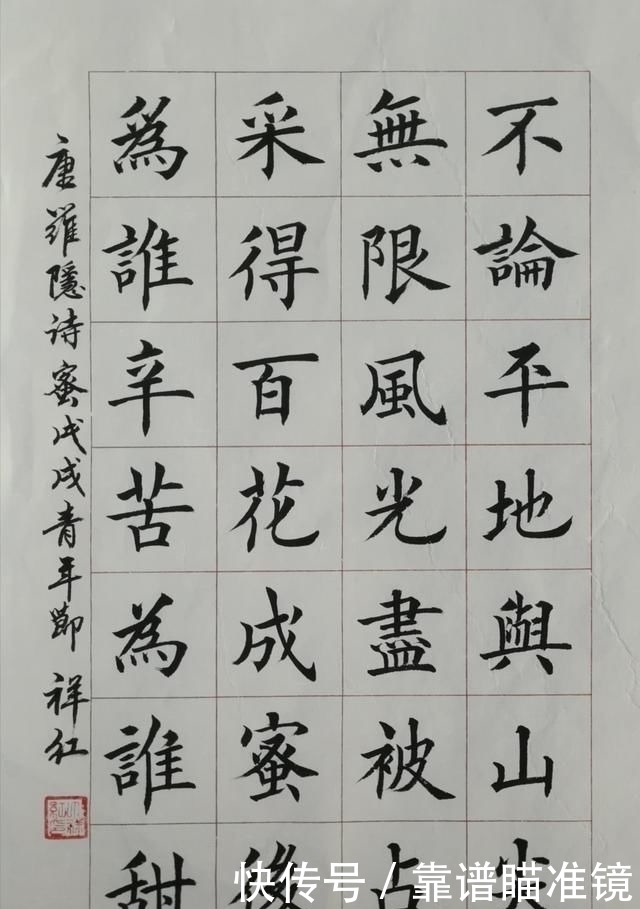 不論平地與山尖
無限風光盡被占
采得百花成蜜後
為誰辛苦為誰甜
唐羅隱诗蜜戊戌青年節 祥红
快传号 / 靠谱瞄准镜